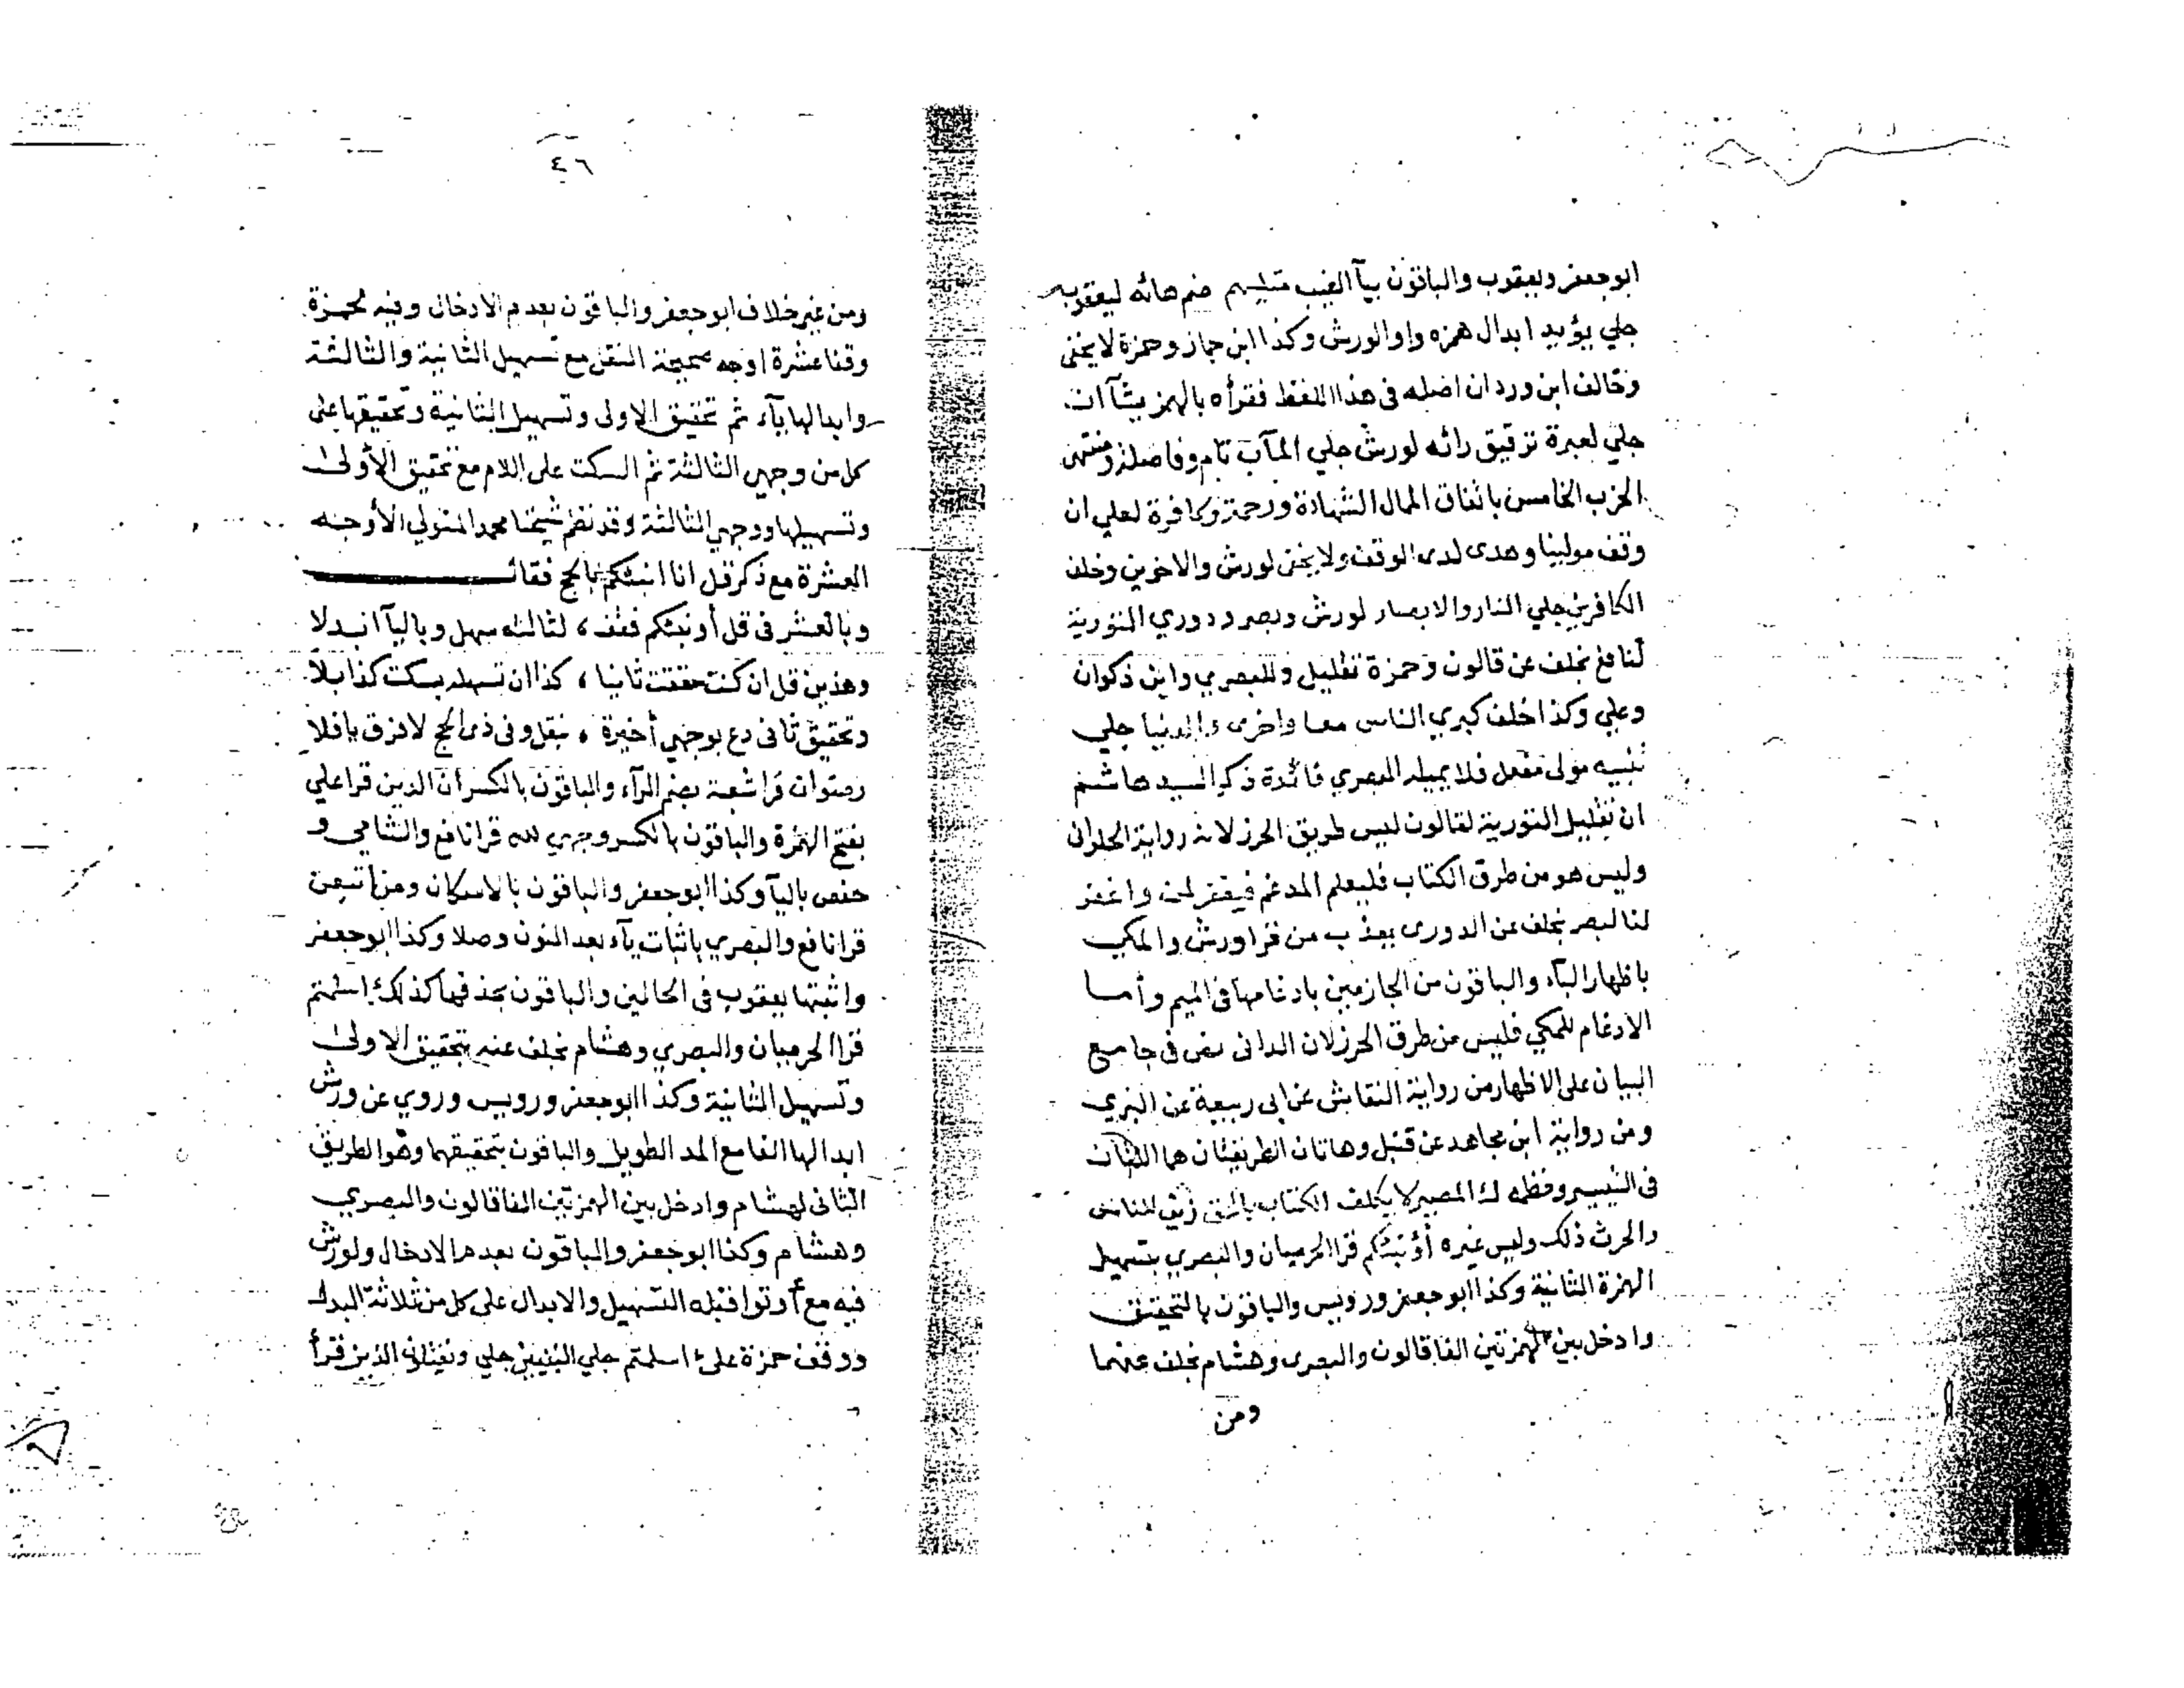 ابو جعفر ويعقوب والباقون بيآ الغيب مثليهم ضم هائه ليعقوب
جلي يؤيد ابدال همزه واوا لورش وكذا ابن جماز وحمزة لا يخفى
وخالف ابن وردان اصله فى هذا اللفظ فقرأه بالهمز يشآ ان
جلي لعبرة ترقيق رائه لورش جلي المآب تام وفاصلة ومنتهى
الحزب الخامس باتفاق الممال الشهادة ورحمة وكافرة لعلي ان
وقف مولينا وهدى لدى الوقف ولا يخفى لورش والاخوين وخلف
الكافرين جلي النار والابصار لورش وبصر ودوري التورية
لنافع بخلف عن قالون وحمزة تقليل وللبصري وابن ذكوان
وعلي وكذا خلف كبرى الناس معا واخرى والدنيا جلي
تنبيه مولى مفعل فلا يميله البصري فائدة ذكر السيد هاشم
ان تقليل التورية لقالون ليس طريق الحرز لانه رواية الحلوانى
وليس هو من طرق الكتاب فليعلم المدغم فيغفر لمن واغفر
لنا لبصر بخلف عن الدورى يعذب من قرا ورش والمكي
باظهار البآء والباقون من الجازمين بادغامها فى الميم وأما
الادغام للمكي فليس من طرق الحرز لان الدانى نص فى جامع
البيان على الاظهار من رواية النقاش عن ابى ربيعة عن البزي
ومن رواية ابن مجاهد عن قنبل وهاتان الطريقتان هما اللتان
فى التيسير ونظمه ك المصير لا يكلف الكتاب بالحق زين للناس
والحرث ذلك وليس غيره أؤنبئكم قرا الحرميان والبصري بتسهيل
الهمزة الثانية وكذا ابو جعفر ورويس والباقون بالتحقيق
وادخل بين الهمزتين الفا قالون والبصرى وهشام بخلف عنهما
ومن
٤٦
ومن غير خلاف ابو جعفر والباقون بعدم الادخال وفيه لحمزة
وقفا عشرة اوجه صحيحة النقل مع تسهيل الثانية والثالثة
وابدالها يآء ثم تحقيق الاولى وتسهيل الثانية وتحقيقها على
كل من وجهي الثالثة ثم السكت على اللام مع تحقيق الأولى
وتسهيلها ووجهي الثالثة وقد نظم شيخنا محمد المتولي الأوجه
العشرة مع ذكر قل انا انبئكم بالحج فقال
وبالعشر فى قل أونبئكم فقف ، لثالثه سهل وباليآ ابدلا
وهذين قل ان كنت حققت ثانيا ، كذا ان تسهله بسكت كذا بلا
وتحقيق ثانى دع بوجهي أخيرة ، بنقل وفى ذى الحج لا فرق يا فلا
رضوان قرا شعبة بضم الرآء والباقون بالكسر أن الدين قرا علي
بفتح الهمزة والباقون بالكسر وجهي لله قرا نافع والشامي و
حفص باليآ وكذا ابو جعفر والباقون بالاسكان ومن اتبعن
قرا نافع والبصري باثبات يآء بعد النون وصلا وكذا ابو جعفر
واثبتها يعقوب فى الحالين والباقون بحذفها كذلك ءاسلمتم
قرا الحرميان والبصري وهشام بخلف عنه بتحقيق الاولى
وتسهيل الثانية وكذا ابو جعفر ورويس وروي عن ورش
ابدالها الفا مع المد الطويل والباقون بتحقيقهما وهو الطريق
الثانى لهشام وادخل بين الهمزتين الفا قالون والبصري
وهشام وكذا ابو جعفر والباقون بعدم الادخال ولورش
فيه مع أوتوا قبله التسهيل والابدال على كل من ثلاثة البدل
ووقف حمزة على ءاسلمتم جلي النبيين جلي ويقتلون الذين قرأ